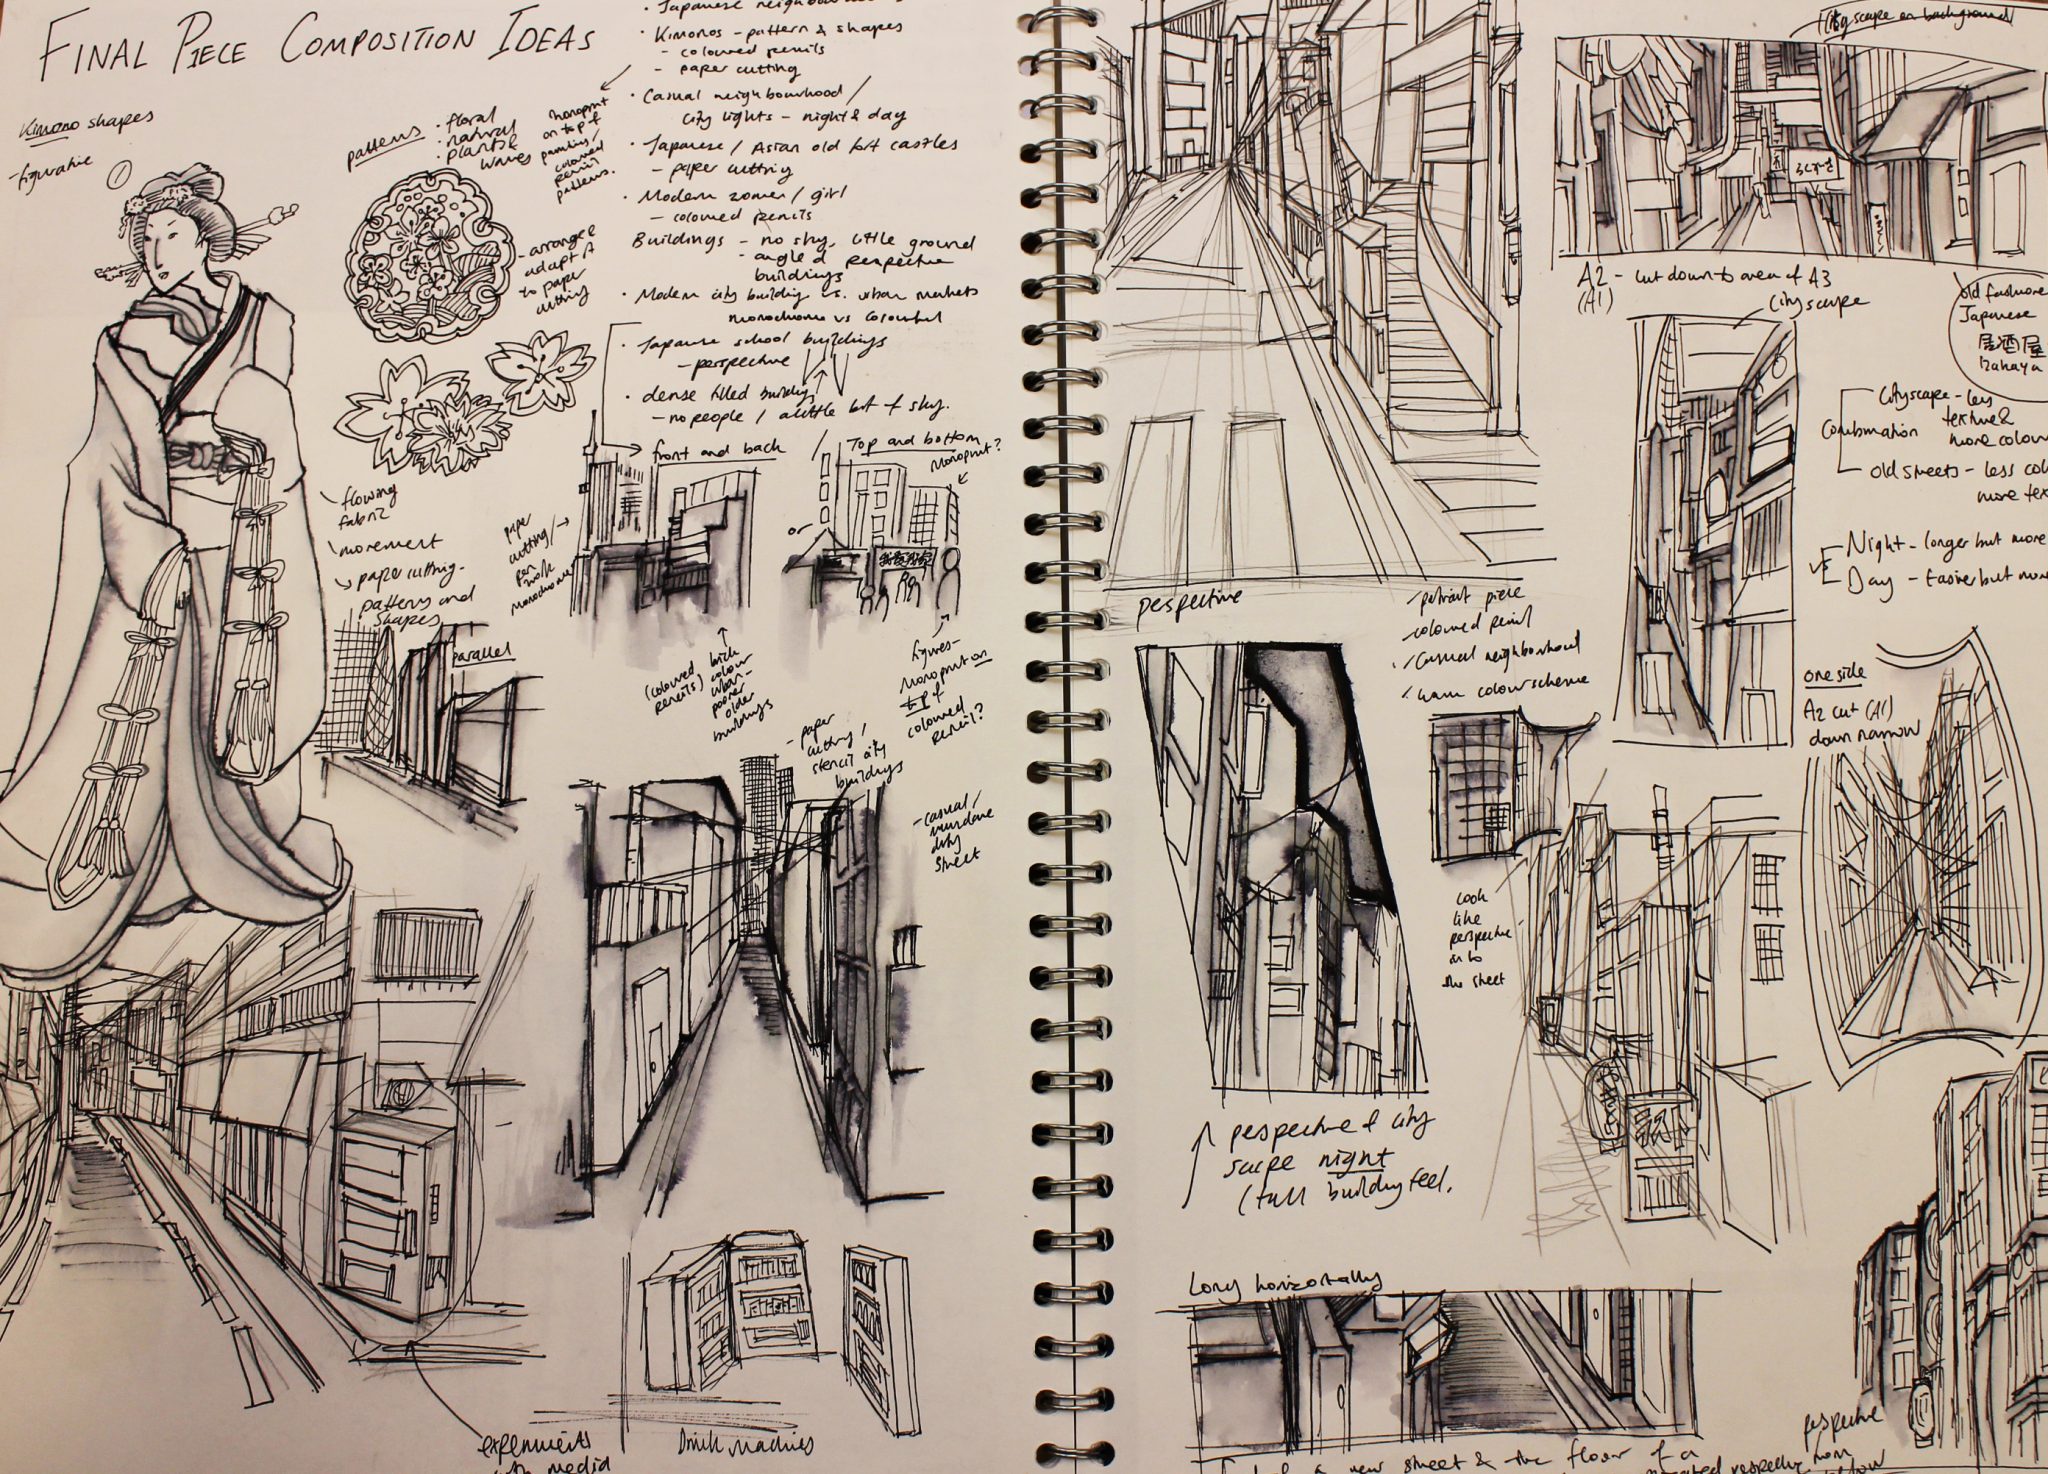 FINAL PIECE COMPOSITION IDEAS
Kimono shapes
- figurative
1
patterns
· floral
· natural
· plants &
waves
monoprint
on top of
painting/
coloured
pencil
patterns.
- arrange &
adapt it
to paper
cutting
· Japanese
· Kimonos - pattern & shapes
- coloured pencils
- paper cutting
· Casual neighbourhood /
city lights - night & day
· Japanese / Asian old castles
- paper cutting
· Modern / girl
- coloured pencils
Buildings - no sky, little ground
- angle & perspective
buildings
· Modern city building vs. urban markets
monochrome vs colourful
· Japanese school buildings
- perspective
· dense filled buildings
- no people / a little bit of sky.
flowing
fabric
movement
paper cutting -
patterns and
shapes
parallel
front and back
Top and bottom
monoprint?
or
paper
cutting /
pen
work
monochrome
(coloured
pencils)
back
colour
urban -
poorer
older
buildings
figures -
monoprint on
top of
coloured
pencil?
- paper
cutting /
stencil city
buildings
- casual /
mundane
city
street
experiments
with media
Drink Machines
perspective
- portrait piece
- coloured pencil
- casual neighbourhood
- warm colour scheme
look
like
perspective
in to
the street
perspective of city
scape night
(tall building feel.
Long horizontally
street & the floor of a
perspective
from
below
Cityscape on background
A2 - cut down to area of A3
(A1)
Cityscape
old fashioned
Japanese
居酒屋
Izakaya
Combination
Cityscape - less
texture &
more colour
old streets - less
more
vs
Night - longer but more
Day - Easier but more
one side
A2 cut (A1)
down narrow